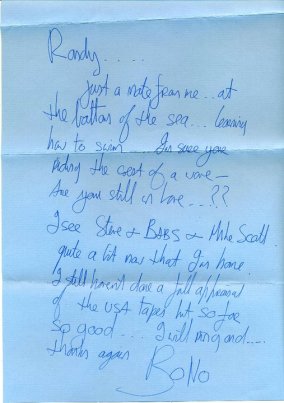 Randy.....
Just a note from me...at
the bottom of the sea... learning
how to swim..... I'm sure your
riding the crest of a wave —
Are you still in love...??
I see Steve & BABS & Mike Scott
quite a bit now that I'm home.
I still haven't done a full appraisal
of the USA tapes but so far
so good.... I will ring and.....
thanks again
BoNo